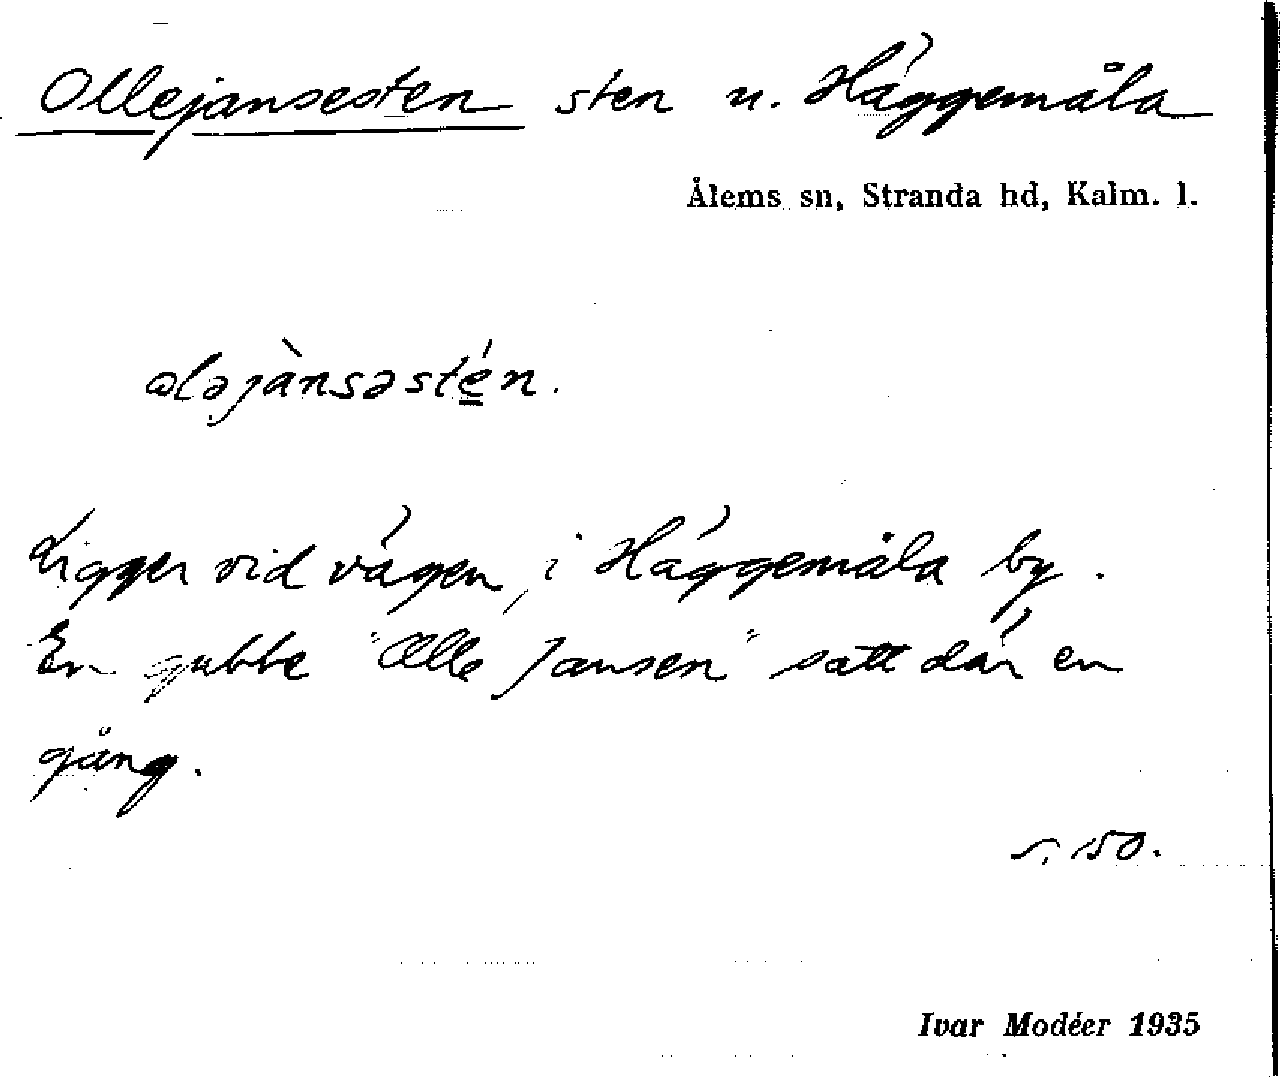 Ollejansesten sten u. Häggemåla
Ålems sn, Stranda hd, Kalm. l.
aləjànsəstén.
Ligger vid vägen, i Häggemåla by.
En gubbe "Olle Jansen" satt där en
gång.
s. 150.
Ivar Modéer 1935